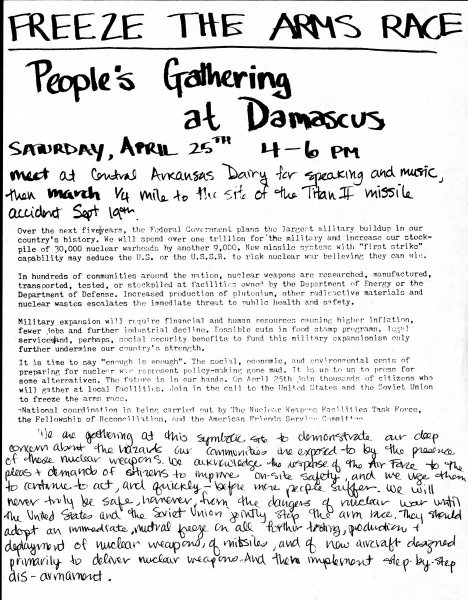 FREEZE THE ARMS RACE
People's Gathering
at Damascus
SATURDAY, APRIL 25TH 4-6 PM
meet at Central Arkansas Dairy for speaking and music,
then march 1/4 mile to the site of the Titan II missile
accident Sept 19th.
Over the next five years, the Federal Government plans the largest military buildup in our
country's history. We will spend over one trillion for the military and increase our stock-
pile of 30,000 nuclear warheads by another 9,000. New missile systems with "first strike"
capability may seduce the U.S. or the U.S.S.R. to risk nuclear war believing they can win.
In hundreds of communities around the nation, nuclear weapons are researched, manufactured,
transported, tested, or stockpiled at facilities owned by the Department of Energy or the
Department of Defense. Increased production of plutonium, other radioactive materials and
nuclear wastes escalates the immediate threat to public health and safety.
Military expansion will require financial and human resources causing higher inflation,
fewer jobs and further industrial decline. Possible cuts in food stamp programs, legal
services and, perhaps, social security benefits to fund this military expansion only
further undermine our country's strength.
It is time to say "enough is enough". The social, economic, and environmental costs of
preparing for nuclear war represent policy-making gone mad. It is up to us to press for
some alternatives. The future is in our hands. On April 25th join thousands of citizens who
will gather at local facilities. Join in the call to the United States and the Soviet Union
to freeze the arms race.
-National coordination is being carried out by The Nuclear Weapons Facilities Task Force,
the Fellowship of Reconciliation, and the American Friends Service Committee
We are gathering at this symbolic site to demonstrate our deep
concern about the hazards our communities are exposed to by the presence
of these nuclear weapons. We acknowledge the response of the Air Force to the
pleas + demands of citizens to improve on-site safety, and we urge them
to continue to act, and quickly - before more people suffer. We will
never truly be safe, however, from the dangers of nuclear war until
the United States and the Soviet Union jointly stop the arm race. They should
adopt an immediate, mutual freeze on all further testing, production +
deployment of nuclear weapons, of missiles, and of new aircraft designed
primarily to deliver nuclear weapons. And then implement step-by-step
dis-armament.